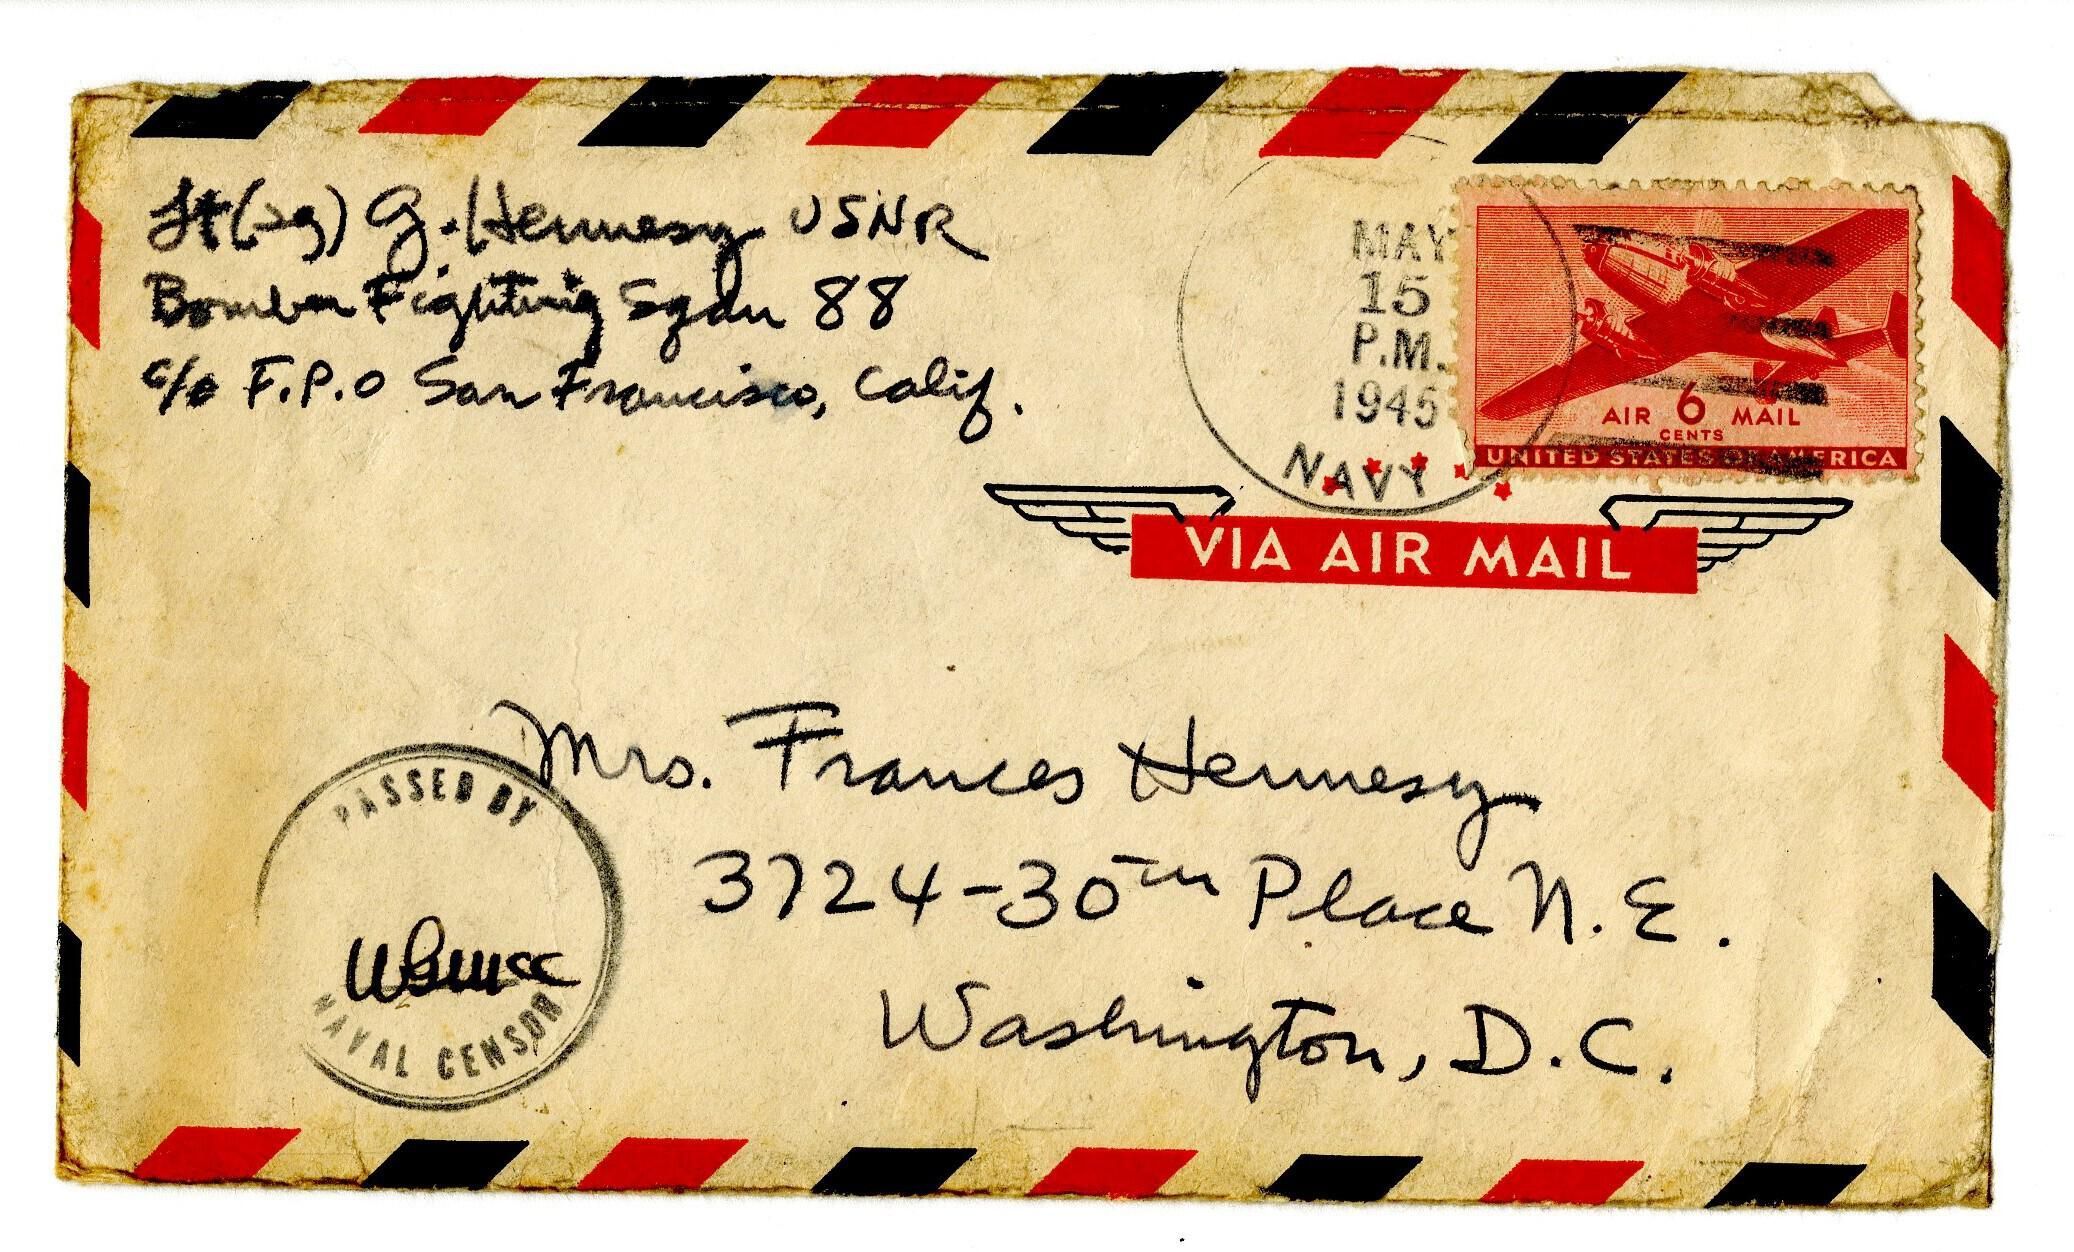 Lt(jg) G. Hennesy USNR
Bomber Fighting Sqdn 88
c/o F.P.O San Francisco, Calif.
MAY
15
P.M.
1945
NAVY
AIR 6 MAIL
CENTS
UNITED STATES OF AMERICA
VIA AIR MAIL
Mrs. Frances Hennesy
3724-30th Place N.E.
Washington, D.C.
PASSED BY
NAVAL CENSOR